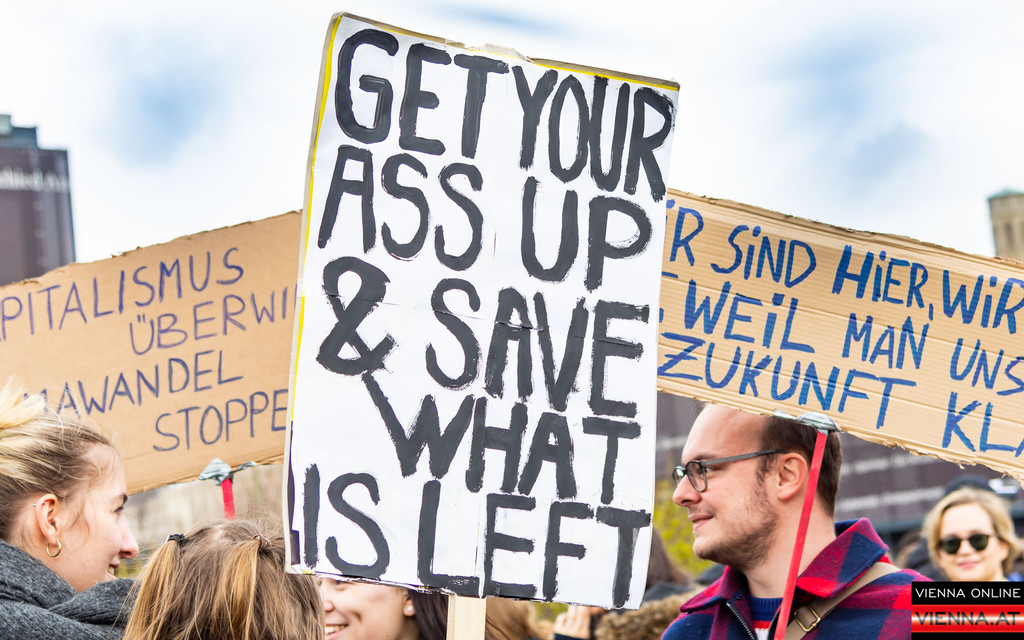 GET YOUR
ASS UP
& SAVE
WHAT
IS LEFT
PITALISMUS
ÜBERWI
AWANDEL
STOPPE
R SIND HiER, WiR
WEiL MAN UNS
ZUKUNFT KLA
VIENNA ONLINE
VIENNA.AT